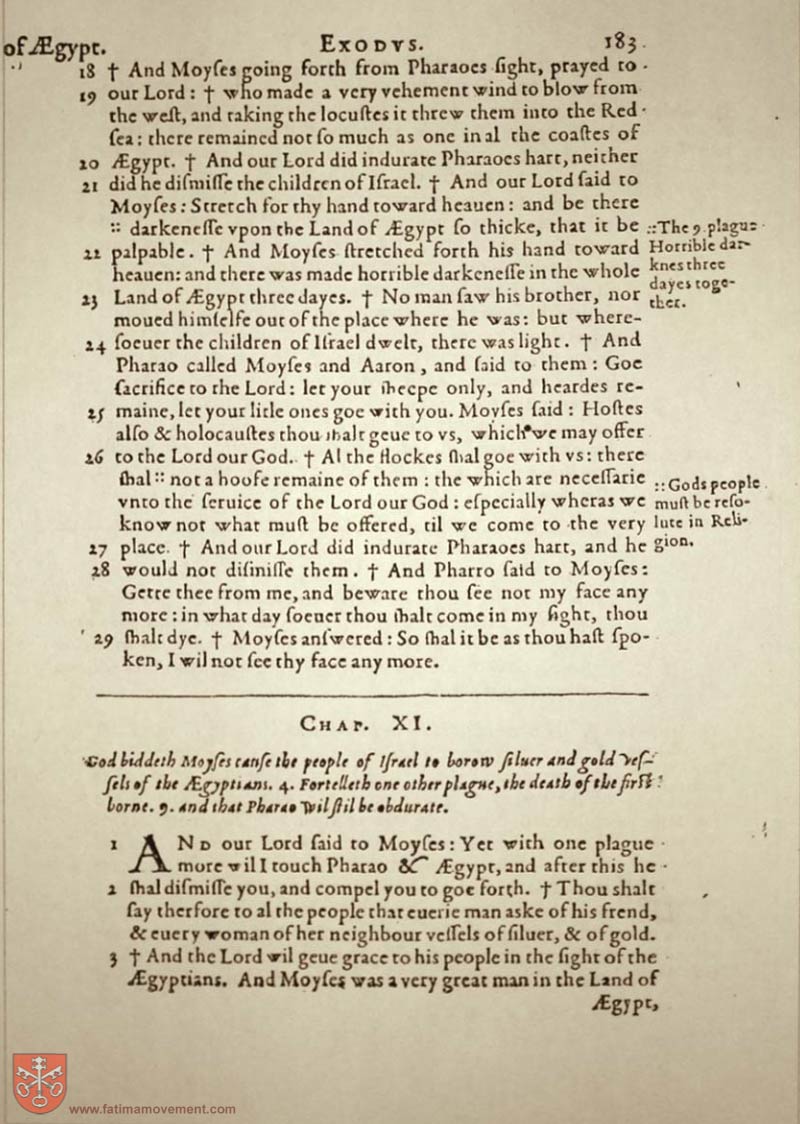 of Ægypt. EXODVS. 183
18 † And Moyſes going forth from Pharaoes ſight, prayed to
19 our Lord : † who made a very vehement wind to blow from
the weſt, and taking the locuſtes it threw them into the Red
ſea : there remained not ſo much as one in al the coaſtes of
20 Ægypt. † And our Lord did indurate Pharaoes hart, neither
21 did he diſmiſſe the children of Iſrael. † And our Lord ſaid to
Moyſes : Stretch forthy hand toward heauen : and be there
:: darkeneſſe vpon the Land of Ægypt ſo thicke, that it be
22 palpable. † And Moyſes ſtretched forth his hand toward
heauen: and there was made horrible darkeneſſe in the whole
23 Land of Ægypt three dayes. † No man ſaw his brother, nor
moued himſelfe out of the place where he was: but where-
24 ſoeuer the children of Iſrael dwelt, there was light. † And
Pharao called Moyſes and Aaron, and ſaid to them : Goe
ſacrifice to the Lord : let your ſheepe only, and heardes re-
25 maine, let your litle ones goe with you. Moyſes ſaid : Hoſtes
alſo & holocauſtes thou ſhalt geue to vs, which we may offer
26 to the Lord our God. † Al the flockes ſhal goe with vs: there
ſhal :: not a hoofe remaine of them : the which are neceſſarie
vnto the ſeruice of the Lord our God : eſpecially wheras we
know not what muſt be offered, til we come to the very
27 place. † And our Lord did indurate Pharaoes hart, and he
28 would not diſmiſſe them. † And Pharro ſaid to Moyſes:
Gette thee from me, and beware thou ſee not my face any
more : in what day ſoeuer thou ſhalt come in my ſight, thou
29 ſhalt dye. † Moyſes anſwered : So ſhal it be as thou haſt ſpo-
ken, I wil not ſee thy face any more.
:: The 9. plague
Horrible dar-
knes three
dayes toge-
ther.
:: Gods people
muſt be reſo-
lute in Reli-
gion.
CHAP. XI.
God biddeth Moyſes cauſe the people of Iſrael to borow ſiluer and gold veſ-
ſels of the Ægyptians. 4. Fortelleth one other plague, the death of the firſt
borne. 9. and that Pharao wil ſtil be obdurate.
1 AND our Lord ſaid to Moyſes : Yet with one plague
more wil I touch Pharao & Ægypt, and after this he
2 ſhal diſmiſſe you, and compel you to goe forth. † Thou ſhalt
ſay therfore to al the people that euerie man aske of his frend,
& euery woman of her neighbour veſſels of ſiluer, & of gold.
3 † And the Lord wil geue grace to his people in the ſight of the
Ægyptians. And Moyſes was a very great man in the Land of
Ægypt,
www.fatimamovement.com